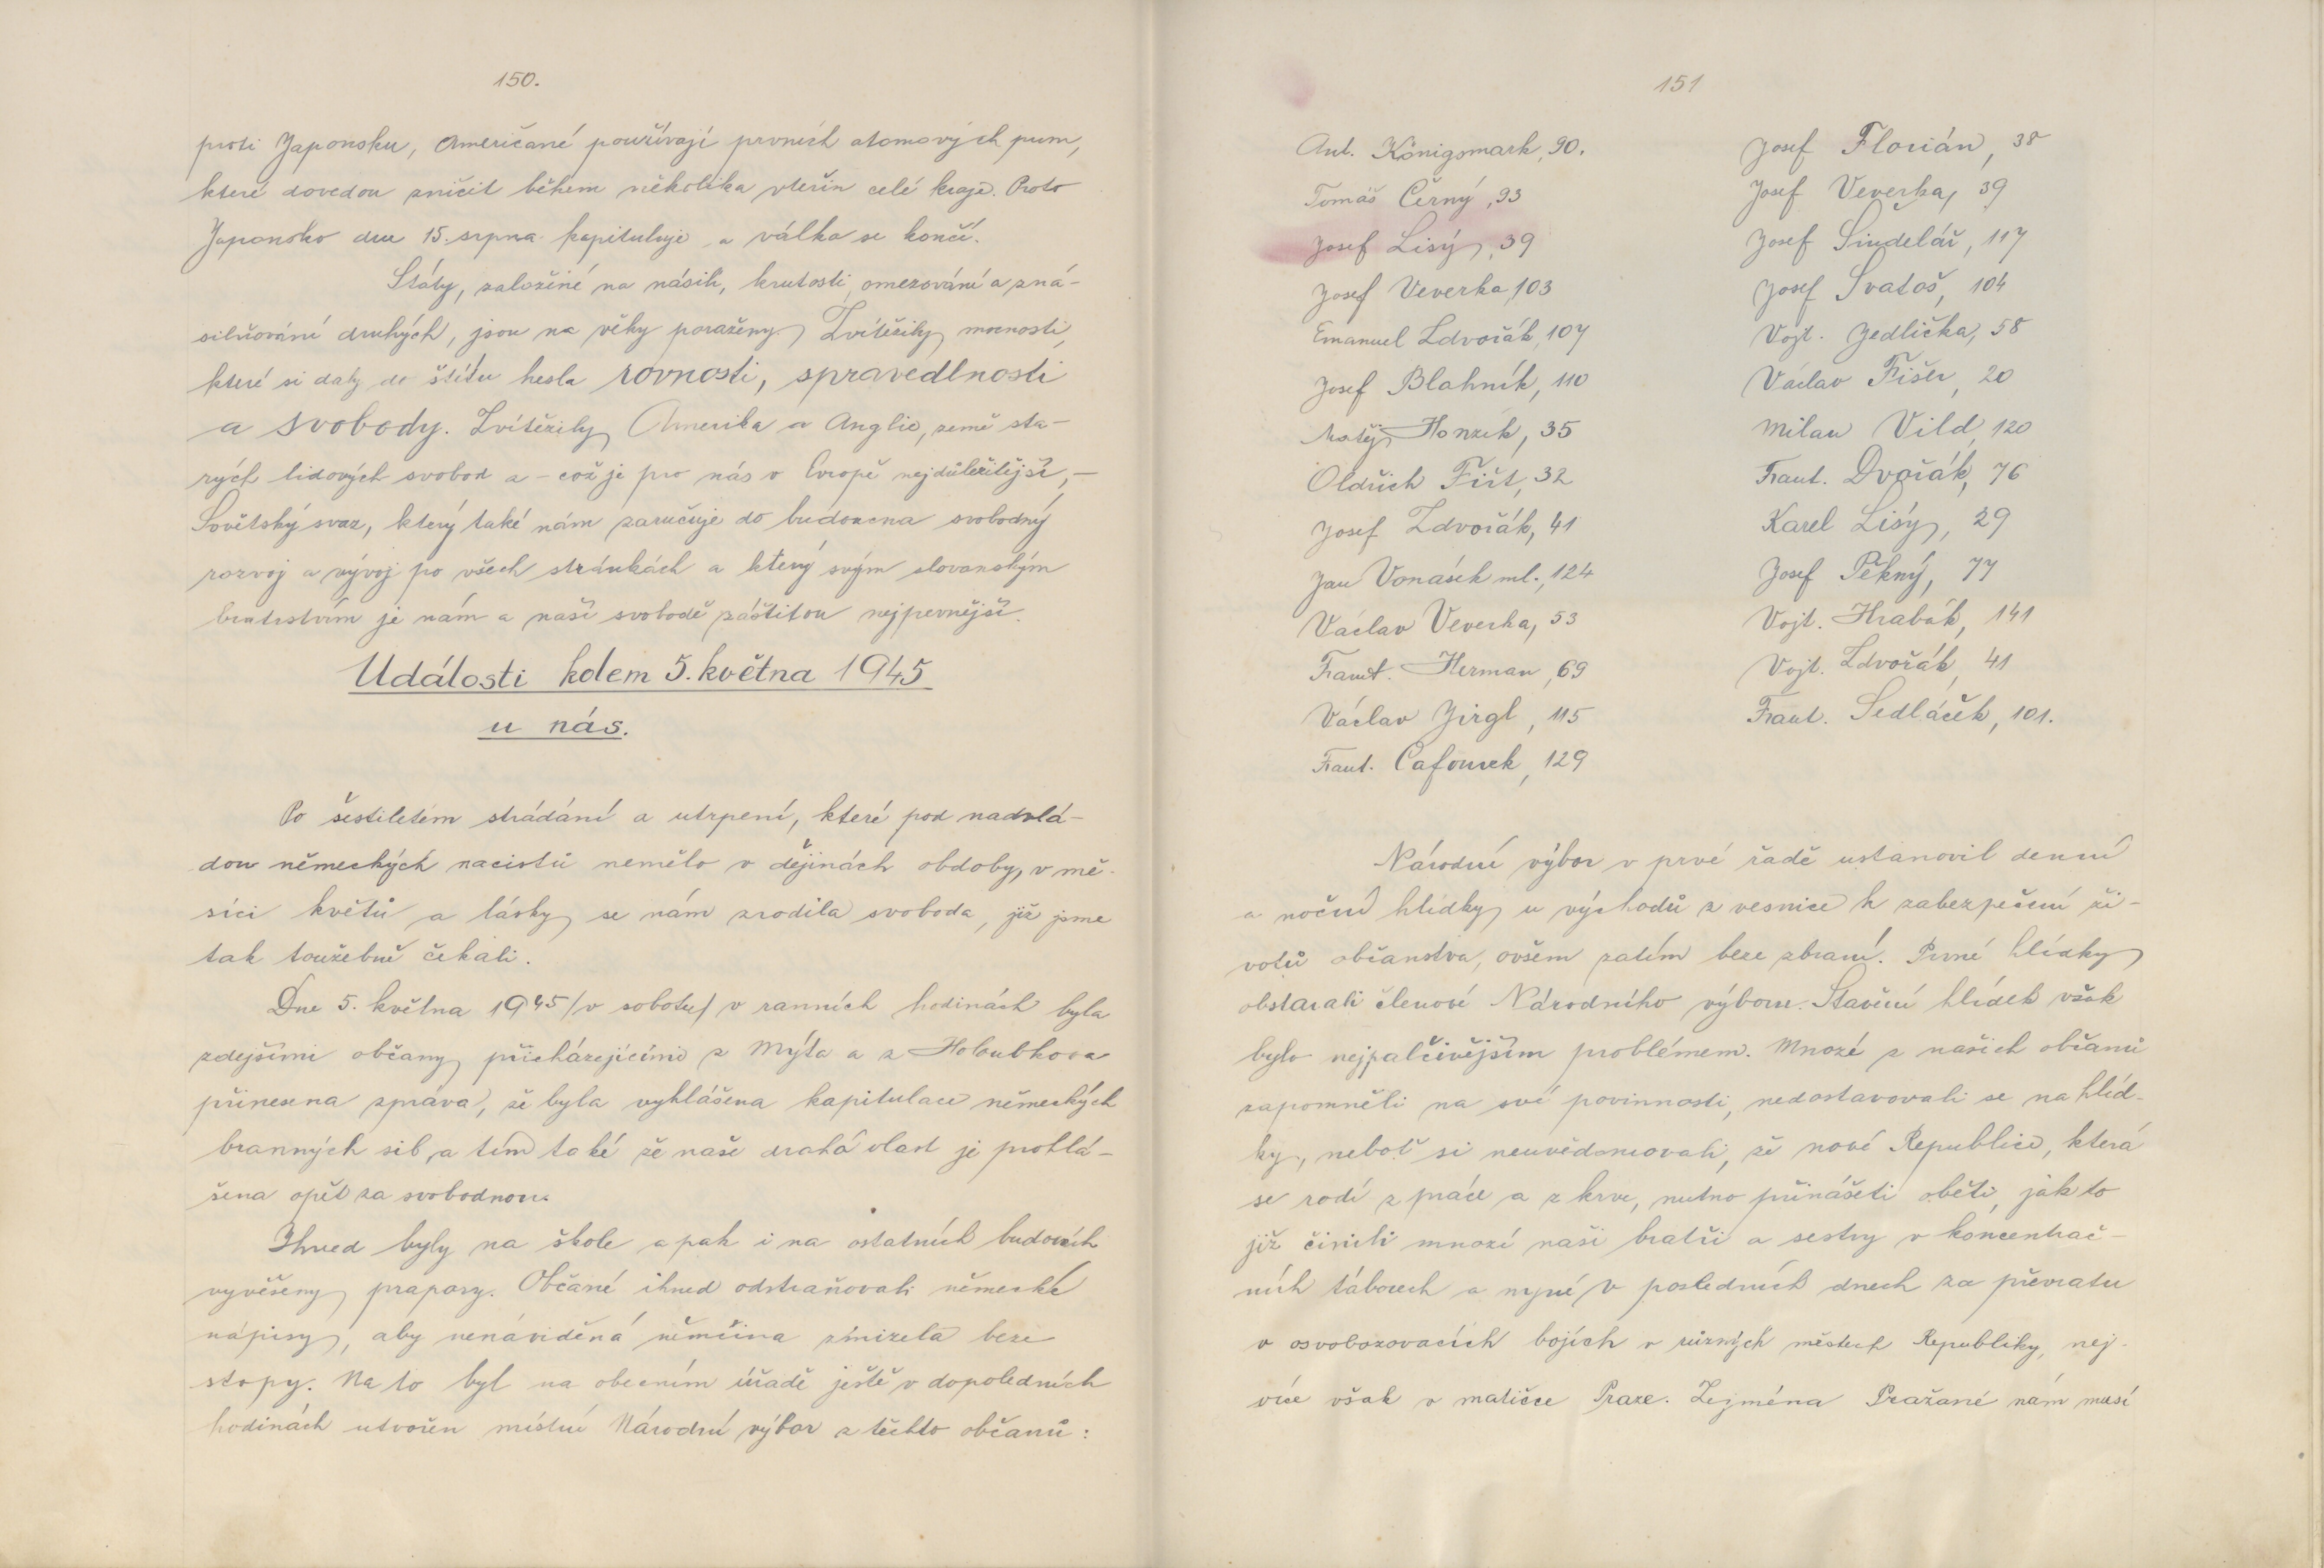 150.
proti Japonsku, Američané používají prvních atomových pum,
které dovedou zničit během několika vteřin celé kraje. Proto
Japonsko dne 15. srpna kapituluje a válka se končí.
Státy, založené na násilí, krutosti, omezování a zná-
silňování druhých, jsou na věky poraženy. Zvítězily mocnosti,
které si daly do štítu hesla rovnosti, spravedlnosti
a svobody. Zvítězily Amerika a Anglie, země sta-
rých lidových svobod a - což je pro nás v Evropě nejdůležitější, -
Sovětský svaz, který také nám zaručuje do budoucna svobodný
rozvoj a vývoj po všech stránkách a který svým slovanským
bratrstvím je nám a naší svobodě záštitou nejpevnější.
Události kolem 5. května 1945
u nás.
Po šestiletém strádání a utrpení, které pod nadvlá-
dou německých nacistů nemělo v dějinách obdoby, v mě-
síci květů a lásky se nám zrodila svoboda, již jsme
tak toužebně čekali.
Dne 5. května 1945 /v sobotu/ v ranních hodinách byla
zdejšími občany přicházejícími z Mýta a z Holoubkova
přinesena zpráva, že byla vyhlášena kapitulace německých
branných sil, a tím také že naše drahá vlast je prohlá-
šena opět za svobodnou.
Ihned byly na škole a pak i na ostatních budovách
vyvěšeny prapory. Občané ihned odstraňovali německé
nápisy, aby nenáviděná němčina zmizela beze
stopy. Na to byl na obecním úřadě ještě v dopoledních
hodinách utvořen místní Národní výbor z těchto občanů:
151
Ant. Königsmark, 90.
Tomáš Černý, 93
Josef Lisý, 39
Josef Veverka, 103
Emanuel Zdvořák, 107
Josef Blahník, 110
Matěj Honzík, 35
Oldřich Fišt, 32
Josef Zdvořák, 41
Jan Vonásek ml., 124
Václav Veverka, 53
Frant. Herman, 69
Václav Jirgl, 115
Frant. Cafourek, 129
Josef Florián, 38
Josef Veverka, 39
Josef Šindelář, 117
Josef Svatoš, 104
Vojt. Jedlička, 58
Václav Fišer, 20
Milan Vild, 120
Frant. Dvořák, 76
Karel Lisý, 29
Josef Pěkný, 77
Vojt. Hrabák, 141
Vojt. Zdvořák, 41
Frant. Sedláček, 101.
Národní výbor v prvé řadě ustanovil denní
a noční hlídky u východů z vesnice k zabezpečení ži-
votů občanstva, ovšem zatím beze zbraní. Prvné hlídky
obstarali členové Národního výboru. Stavění hlídek však
bylo nejpalčivějším problémem. Mnozé z našich občanů
zapomněli na své povinnosti, nedostavovali se na hlíd-
ky, neboť si neuvědomovali, že nové Republice, která
se rodí z práce a z krve, nutno přinášeti oběti, jak to
již činili mnozí naši bratři a sestry v koncentrač-
ních táborech a nyní v posledních dnech za převratu
v osvobozovacích bojích v různých městech Republiky, nej-
více však v matičce Praze. Zejména Pražané nám musí